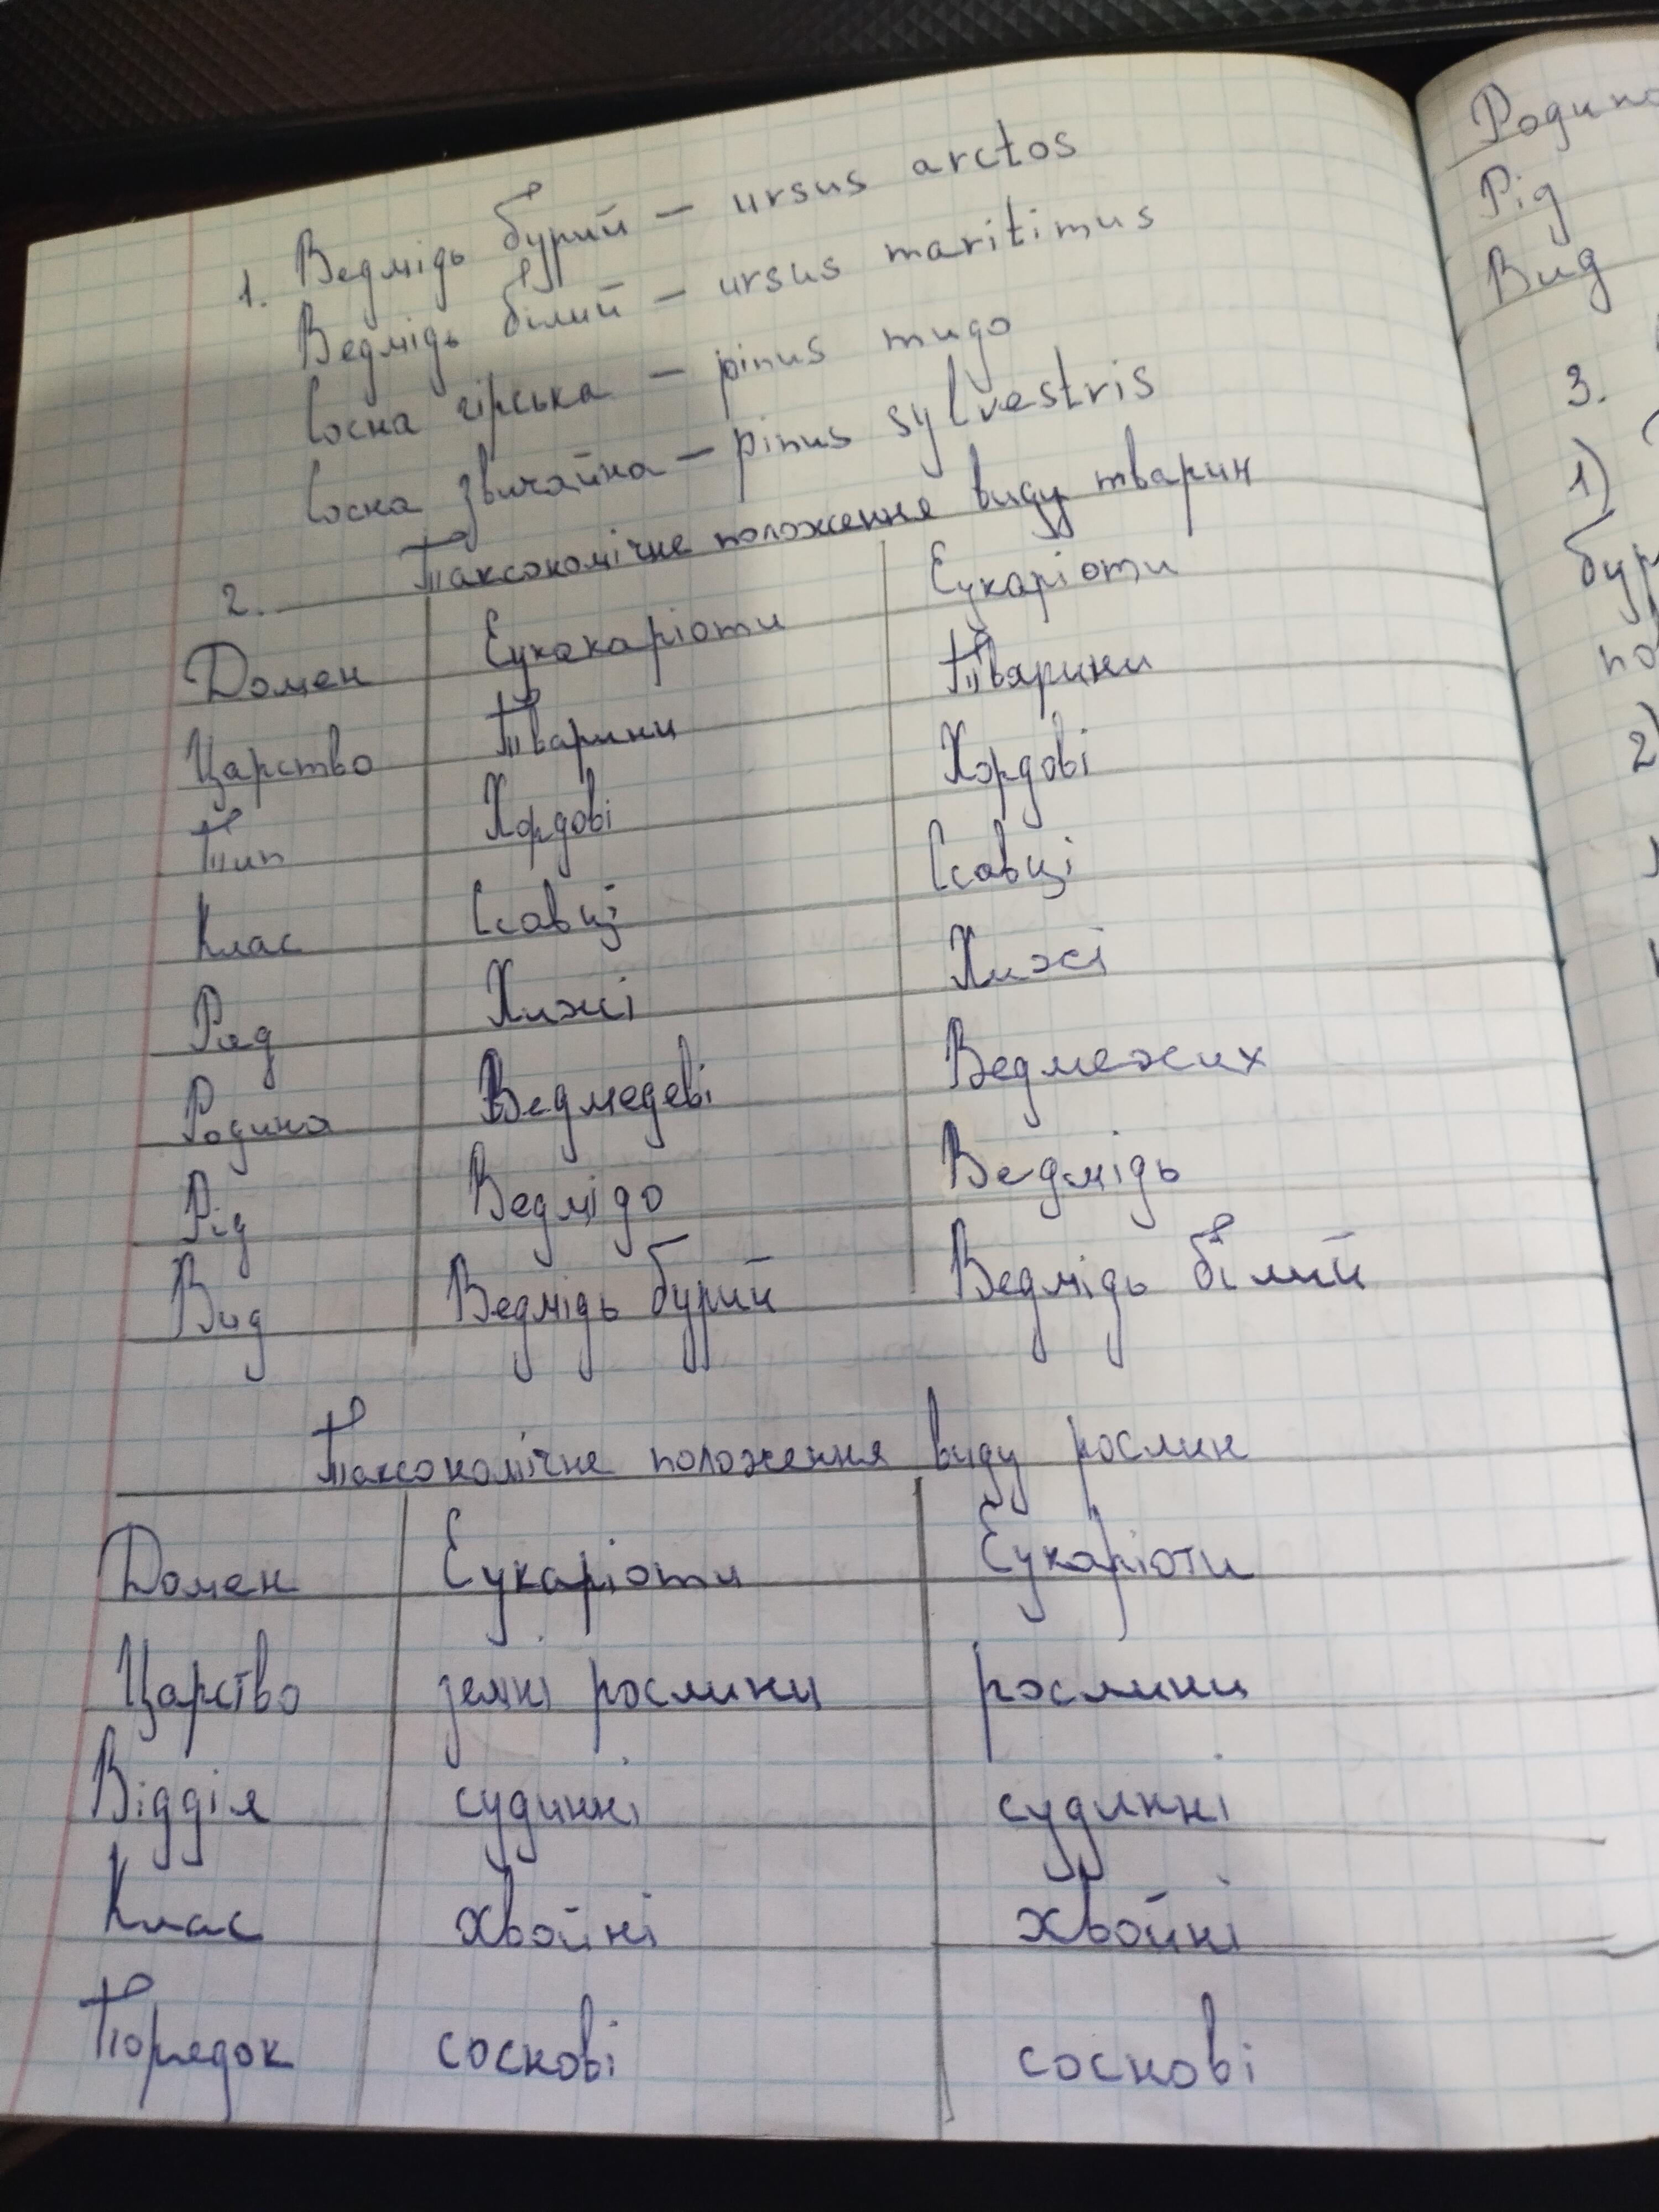 1. Ведмідь бурий – ursus arctos
Ведмідь білий – ursus maritimus
Сосна гірська – pinus mugo
Сосна звичайна – pinus sylvestris
2. Таксономічне положення виду тварин
Домен Еукакаріоти Еукаріоти
Царство Тварини Тварини
Тип Хордові Хордові
Клас Ссавці Ссавці
Ряд Хижі Хижі
Родина Ведмедеві Ведмежих
Рід Ведмідь Ведмідь
Вид Ведмідь бурий Ведмідь білий
Таксономічне положення виду рослин
Домен Еукаріоти Еукаріоти
Царство земні рослини рослини
Відділ судинні судинні
Клас хвойні хвойні
Порядок соснові соснові
Рід
Вид
3.
1)
2)